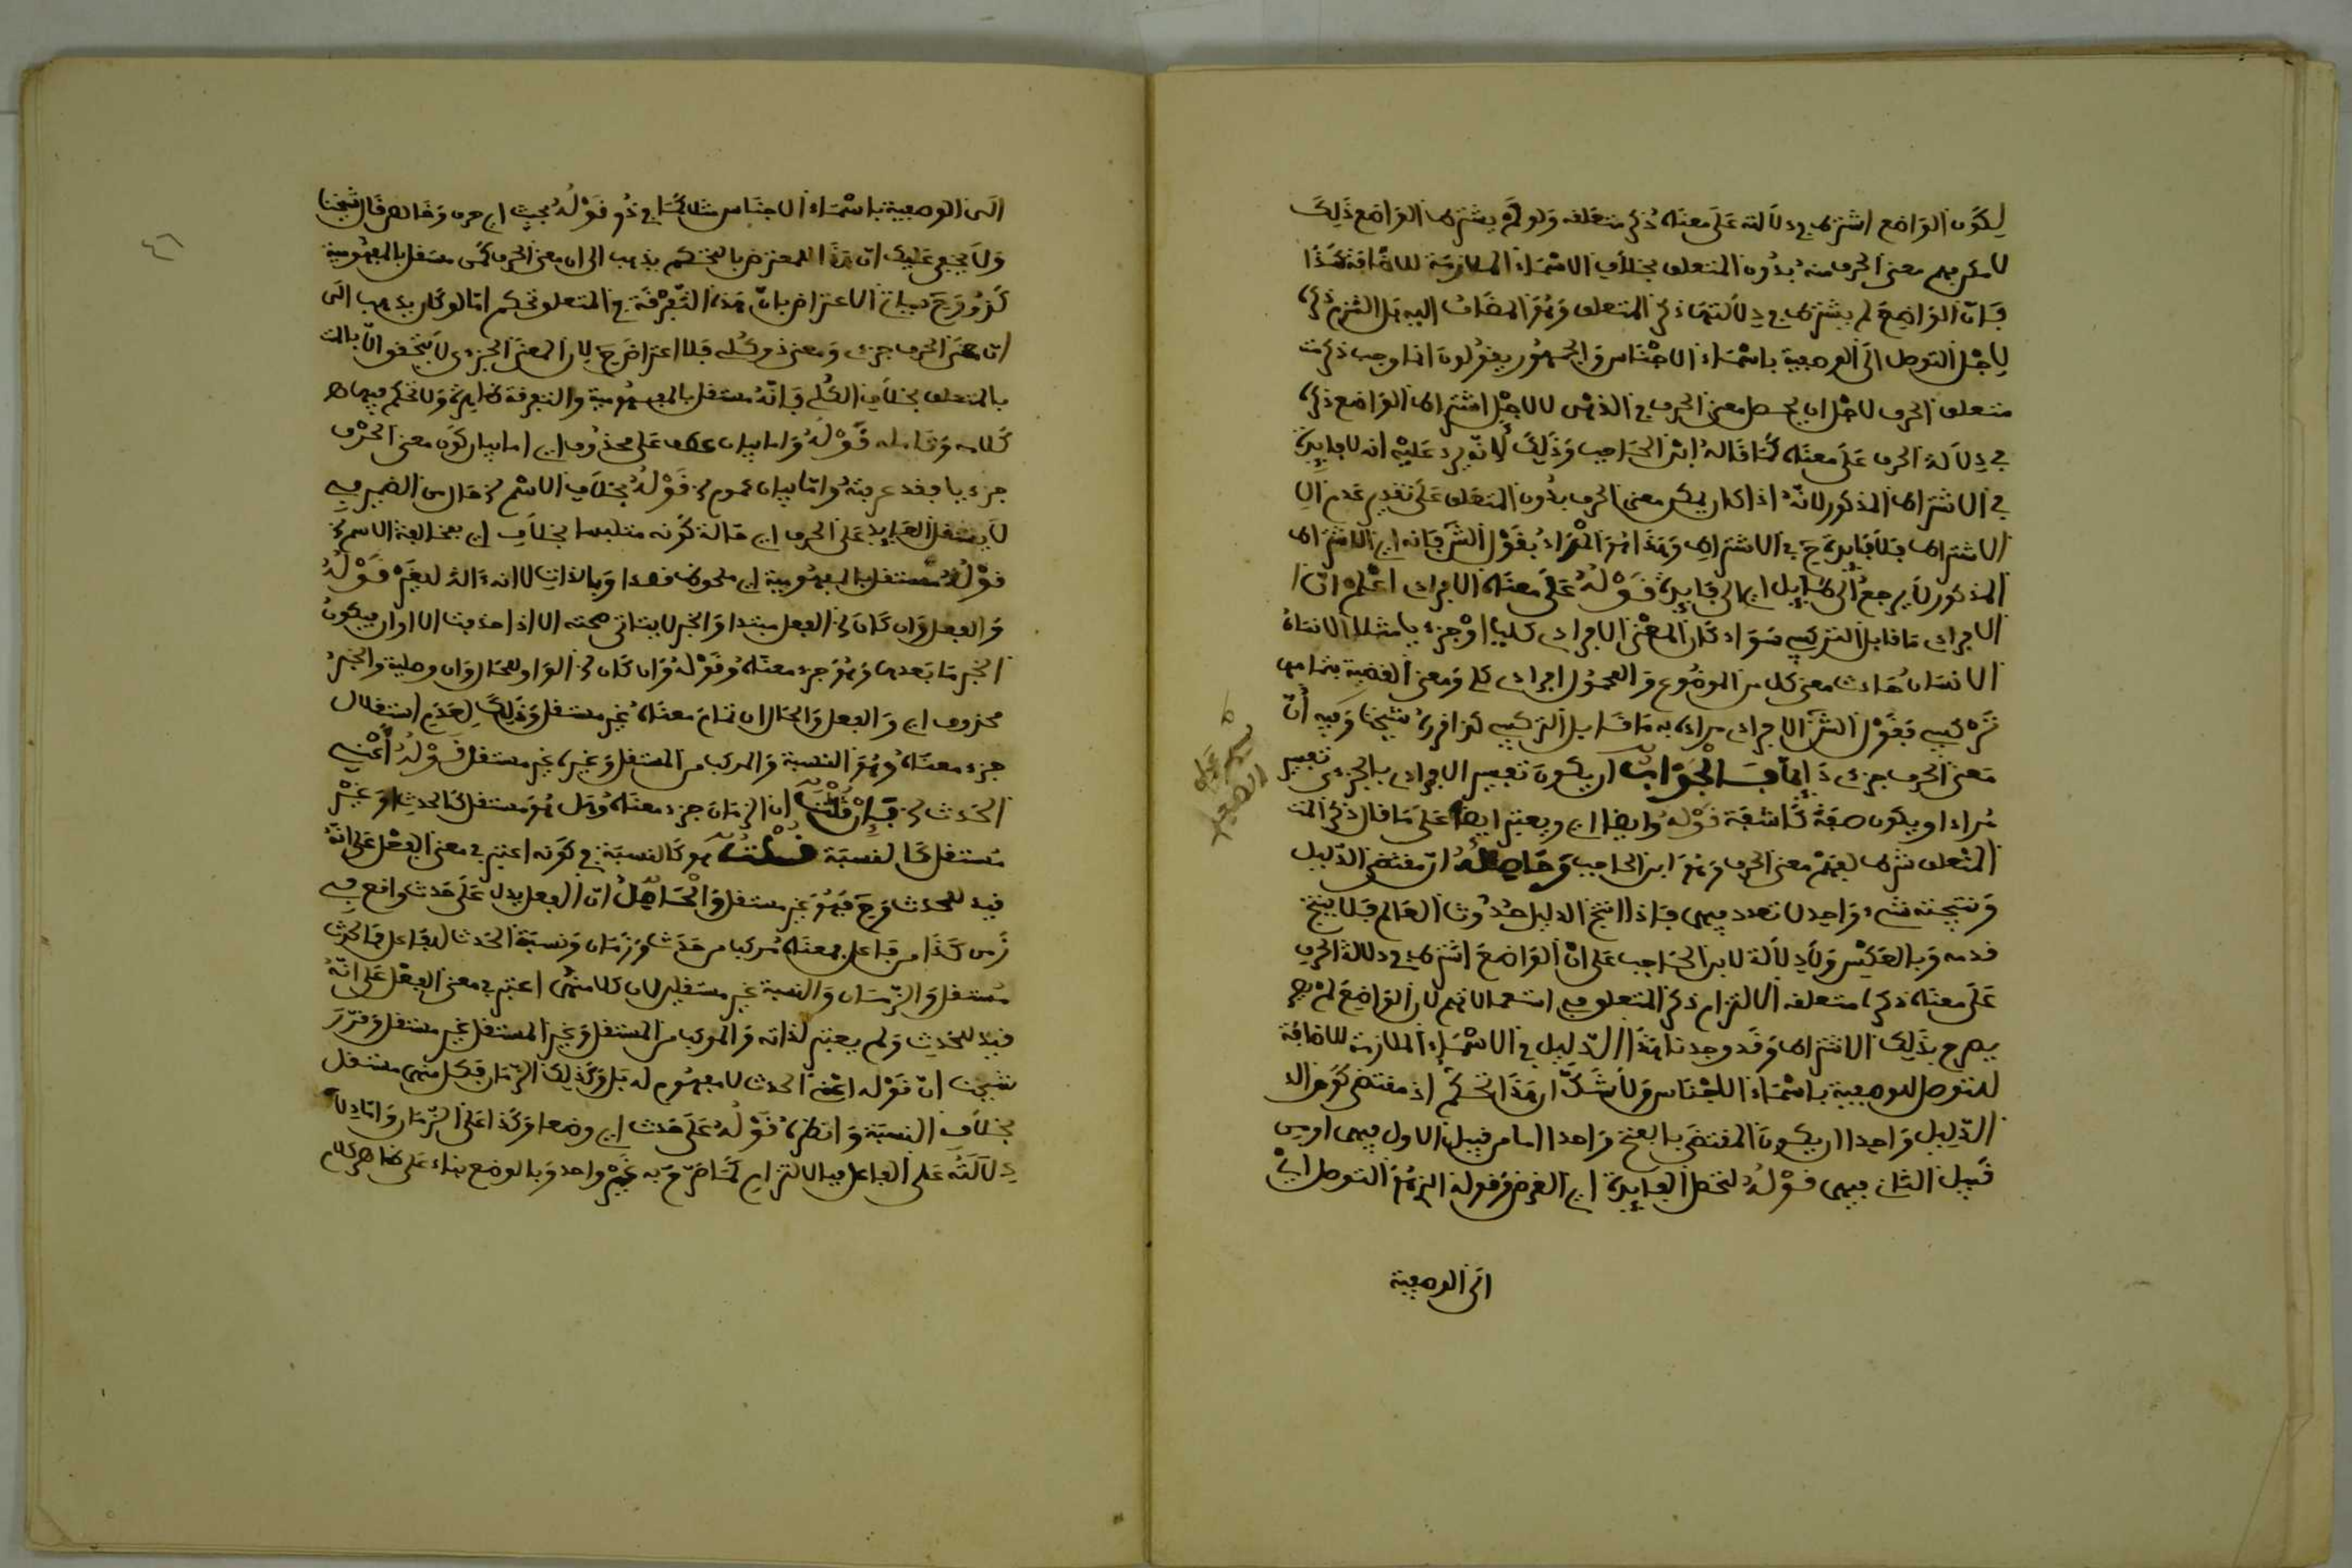 لِكَوْن الوَاضع اشترط في دلالته عَلَى معناه ذكر متعَلقه وَلو لَمْ يشترط الوَاضع ذَلِكَ
لا مكن فهم معنى الحرف منه بدُون المتعلق بخلاَف الاسْمَاء الملازمَة للاضَافة
فَانّ الوَاضِعَ لم يشترط في دلالتهَا ذكر المتعلق وَهُوَ المضَاف اليه بَل التُزم ذكره
لِاجْل التوصل الَى الوصفية باسْمَاء الاجْنَاس وَالجمهُور يقولون انما وجب ذكر
متعلق الحرف لاجْل ان يحصل معنى الحرف في الذهن لا لاجْل اشتراط الوَاضع ذكره
في دِلاَلة الحرف عَلَى معنَاه كمَا قَالهُ ابْن الحَاجب وَذَلِكَ لأنّه يرد عَلَيْه انه لا فائِدة
في الاشتراط المذكور لانّه اذا كان يمكن معنى الحرف بدُون المتعَلق عَلَى تقدِير عَدم الا
الاشتراط فلاَ فَايدة حَ في الاشتراط وَهَذَا هُوَ الْمُرَاد بقَوْل الشَّ فَانه اي الاشترَاط
المذكور لاَ يرجعُ الى طَايل اي الى فَايدة قَوْلُهُ عَلَى معنَاه الافرادى اعْلم انّ ا
الافرادى مَا قابل التركيب سَوَاء كَان المعْنى الافرادى كليا اوْ جزء يا مثلا الانسَان
الانسَان حَادث معنى كل من الموضُوع وَ المحمُول افرادى كلي وَمعنى القضية بتمامها
تَرْكيبي فقَوْل الشَّ الافرادى مراده به مَا قَابل التركيب كذا قرره شيخنا وَفيه أَنّ
مَعنى الحرف جزءى دَايمًا فَـالجَوَابُ ان يكون تفسير الافرادى بالجزءى تفسير
مُراد او يكون صفَةً كَاشفَة قَوْلهُ وَايضا اي ويعتبر ايضًا عَلَى مَا قال ذكر المت
المتْعلق شرط لفهْم معنى الحرف وَهُوَ ابن الحاجب وَحَاصِلُهُ انّ مقتضى الدّليل
وَنتيجته شيء وَاحِد لا تعدد فيهى فَاذا انتج الدليل حُدُوث العَالم فَلا ينتج
قدمه وَبالعَكْسِ وَلاَ دِلاَلَة لابن الحَاجب عَلى انّ الوَاضعَ اشترط في دلالة الحرف
عَلَى معنَاه ذكر متعلقه الا التزام ذكر المتعلق في استعمالاتهم لان الوَاضِعَ لَمْ يص
يصرح بذَلِكَ الاشتراط وَقَد وجدنا هَذَا الدّلِيل في الاسْمَاء الملازمة للاضافة
للتوصل للوصفية باسْمَاء الاجْنَاس وَلاَ شَكّ ان هَذَا تحكمٌ اذ مقتضى كَوْن ال
الدّلِيل وَاحِدا ان يكون المقتضَى بالفتح وَاحدا اما من قبِيل الاول فيهى او من
قَبيل الثاني فيهى قَوْلُهُ لتحصيل الفَايِدة اي الغرض وَقوله الذي هُوَ التوصل اي
الَى الوصفية
الَى الوصفية باسْمَاء الاجنَاس مثلا كمَا في ذُو قَوْلُهُ بحيث اي حرف وَخالص قَال شيخنا
وَلاَ يخفى عَليك انّ هَذَا المعترض بالتحكم يذهب الى ان معنى الحرف كلي مستقل بالمفهُومية
كَذُو وَحَ فبيان الاعتراض بانّ هَذه التّفرقَة في المتعلق تحكم امّا لو كان يذهب الى
انّ معنى الحرف جزءى وَمعنى ذو كلى فلا اعتراض حَ لان المعنَى الجزءى لاَ يتحَقق الاّ بالمت
بالمتعلق بخلاَف الكُلى فَانّهُ مستقل بالمفهُومية والتفرقة ظاهرة وَلا تحكم فيهى اه
كَلامه وَتامله قَوْلهُ وَاما بيان عطف عَلى محذوف اي اما بيان كَوْن معنى الحرْف
جزء يا فقد عرفته وَامّا بيان عموم لخ قَوْلُهُ بخلاَف الاسْم لخ حَال من الضمير في
لاَ يستقل العَايد عَلَى الحرف اي حَالة كَوْنه متلبسا بخلاَف اي بمخالفة الاسم لخ
قَوْلُهُ مستقل بالمفهُومية اي ملحوظ قصدا وَبالذات لا انه ءَالة لغَيْره قَوْلُهُ
وَ الفعل وَان كَان لخ الفعل مبتدا وَ الخبر لا يتاتى صحته الا اذا حذفت الاوان فيكون
الخبر مَا بَعدها وَهُوَ جزء معنَاه وَقَوْلهُ وَان كَان لخ الوَاو للحَال وَان وصلية والخبر
محذوف اي وَ الفعل وَالحَال ان تمَام معنَاه غير مستقل وَذَلِكَ لِعَدَم استقلال
جزء معنَاه وَهُوَ النسبة وَ المركب من المستقل وَغيره غير مستقل قَوْلهُ أَعْني
الحَدث لخ فَاِنْ قُلْتَ ان الزمَان جزء معنَاه وَهَل هُوَ مستقل كَالحدث اوْ غَيْر
مُستقل كَالنسبَة قُـلْتُ هُو كَالنسبَة في كَوْنه اعتبر في معنى الفعْل عَلى انّهُ
قيد للحَدث وَحَ فَهُوَ غير مستقل وَالْحَاصِلُ انّ الفعل يدل عَلَى حَدث وَاقع في
زَمن كَذَا من فَاعل فمعنَاه مُركب من حَدَث وَزَمَان وَنسبَة الحَدث للفَاعل فالحدث
مُستقل وَ الزّمَان وَالنسبة غير مستقلين لان كلا منهُمى اعتبر في معنى الفعْل عَلى انّهُ
قيد للحَدث وَلَم يعتبر لذاته وَ المركب من المستقل وَغير المستقل غير مستقل وَقَرّرَ
شيخنا انّ قَوْله اعْني الحدث لا مفهُوم له بَل وَكَذَلِكَ الزّمَان فَكل منهى مستقل
بخلاَف النسبَة وَ انظره قَوْلُهُ عَلَى حَدث اي وضعا وَكَذا عَلَى الزّمَان وَامّا دلا
دِلاَلَتُهُ عَلى الفَاعل فبالالتزام كمَا صَرّحَ به غَيْر واحد وَبالوضع بناء عَلَى ظاهر كلام